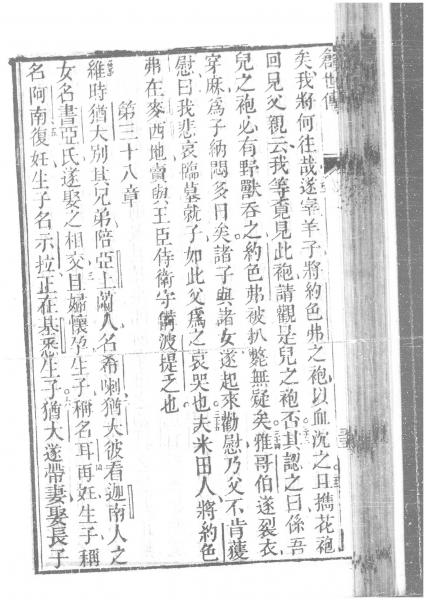 創世傳
矣我將何往哉遂宰羊子將約色弗之袍以血沉之且攜花袍
回見父親云我等竟見此袍請觀是兒之袍否其認之曰係吾
兒之袍必有野獸吞之約色弗被扒斃無疑矣雅哥伯遂裂衣
穿麻為子納悶多日矣諸子與諸女遂起來勸慰乃父不肯獲
慰曰我悲哀臨墓就子如此父為之哀哭也夫米田人將約色
弗在麥西地賣與王臣侍衛守備波提之也
第三十八章
維時猶大別其兄弟陪亞土蘭人名希喇猶大彼看迦南人之
女名書亞氏遂娶之相交且婦懷孕生子稱名耳再妊生子稱
名阿南復妊生子名示拉正在基悉生子猶大遂帶妻娶長子